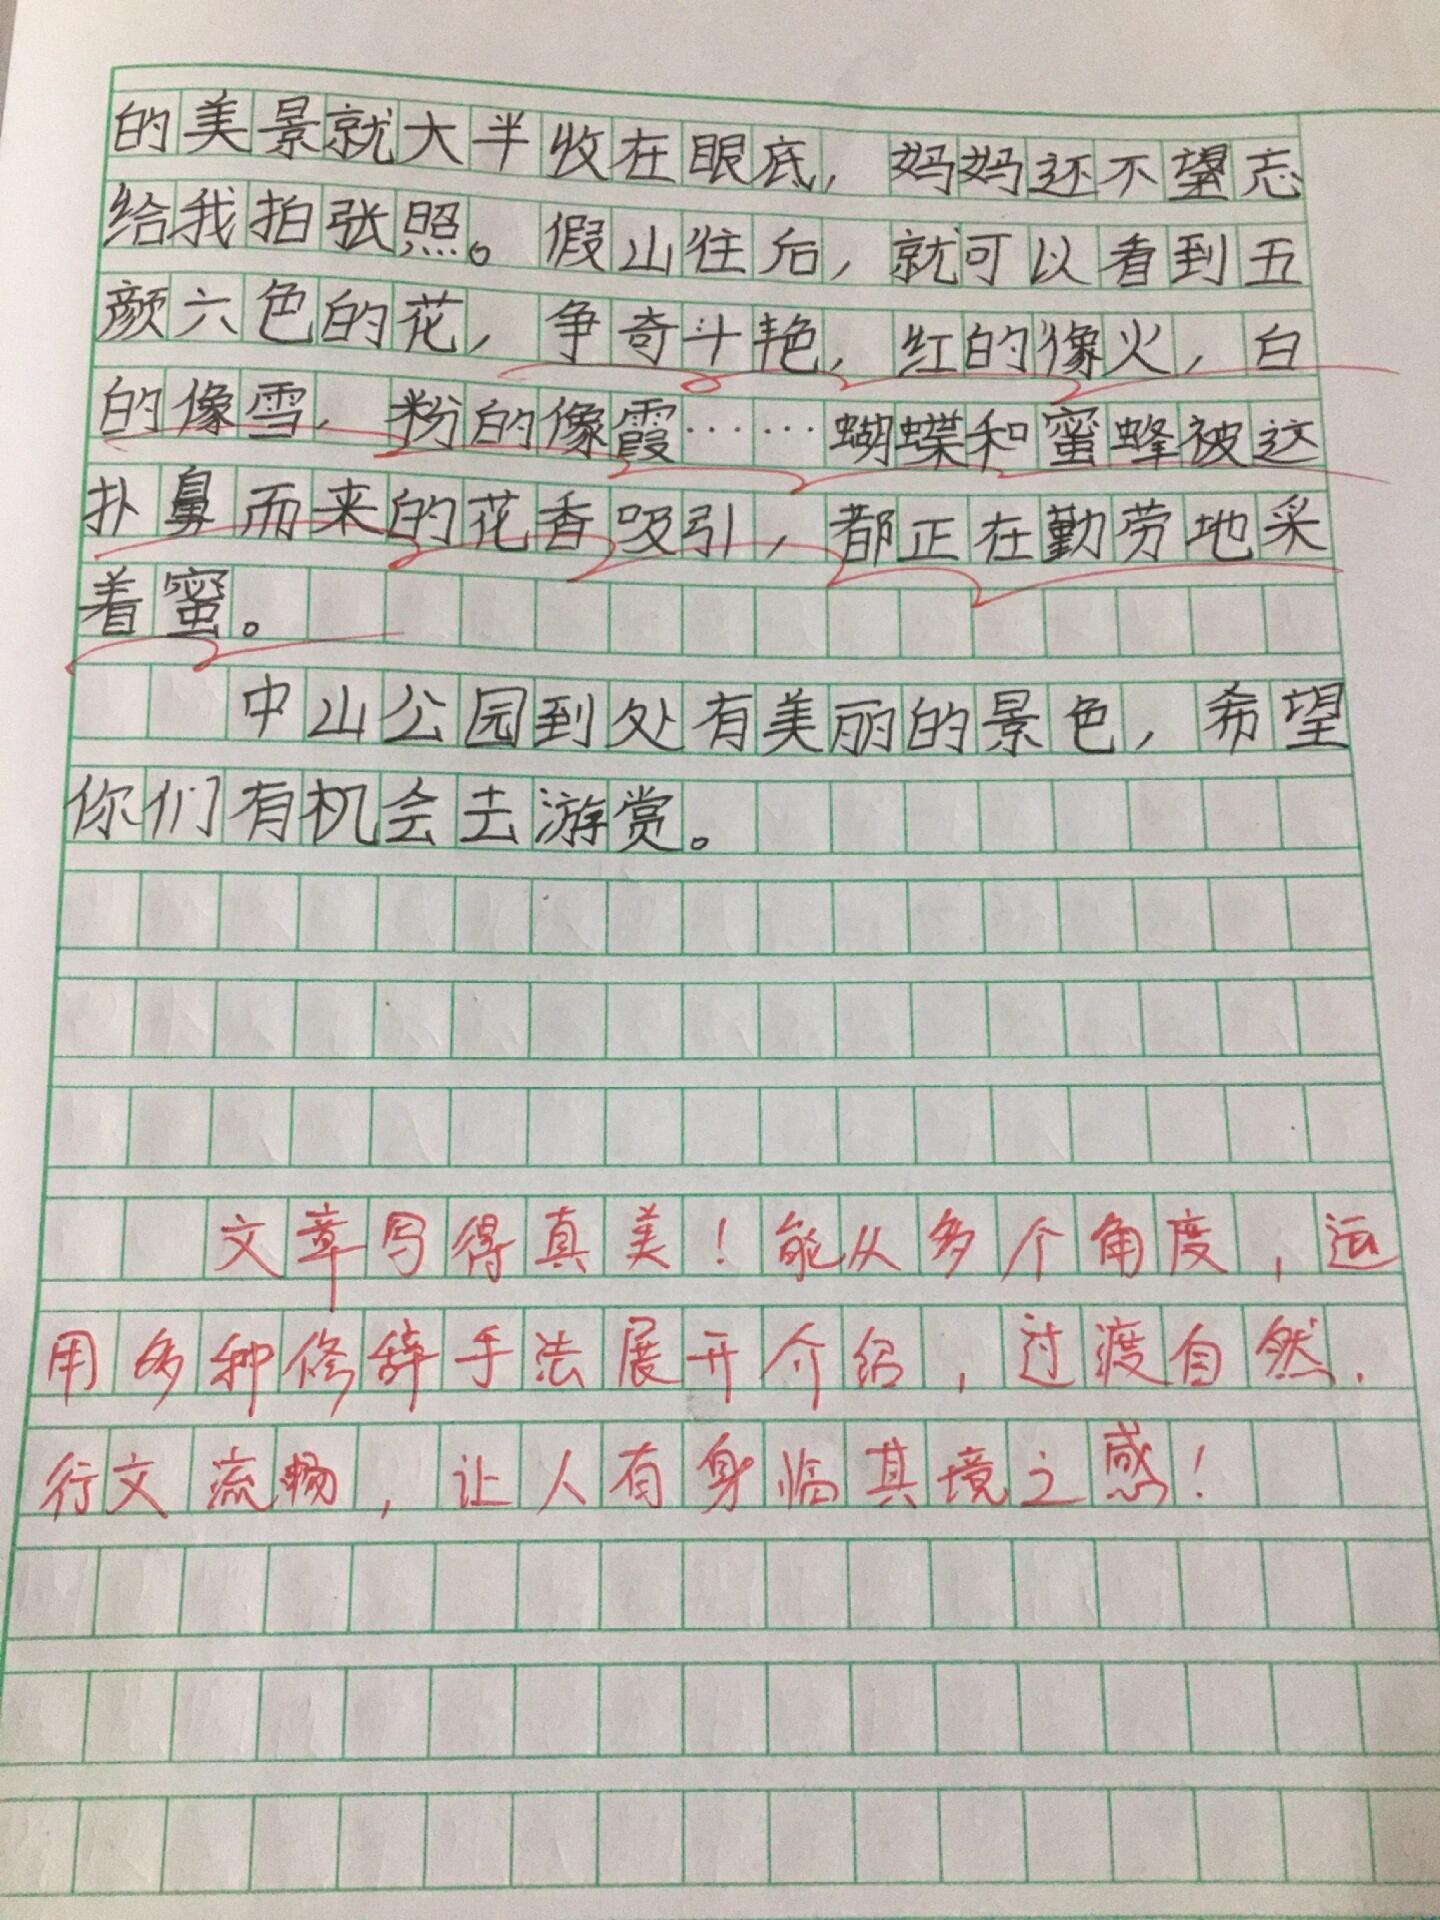 的美景就大半收在眼底，妈妈还不望忘
给我拍张照。假山往后，就可以看到五
颜六色的花，争奇斗艳，红的像火，白
的像雪，粉的像霞……蝴蝶和蜜蜂被这
扑鼻而来的花香吸引，都正在勤劳地采
着蜜。
中山公园到处有美丽的景色，希望
你们有机会去游赏。
文章写得真美！能从多个角度，运
用多种修辞手法展开介绍，过渡自然.
行文流畅，让人有身临其境之感！